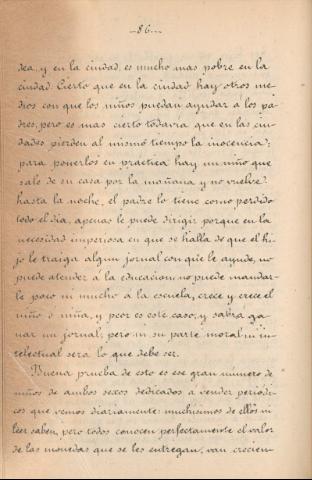 -86-
dea, y en la ciudad, es mucho mas pobre en la
ciudad. Cierto que en la ciudad hay otros me-
dios con que los niños puedan ayudar á los pa-
dres, pero es mas cierto todavía que en las ciu-
dades pierden al mismo tiempo la inocencia;
para ponerlos en práctica hay un niño que
sale de su casa por la mañana y no vuelve
hasta la noche, el padre lo tiene como perdido
todo el dia, apenas le puede dirigir porque en la
necesidad imperiosa en que se halla de que el hi-
jo le traiga algun jornal con que le ayude, no
puede atender á la educacion, no puede mandar-
le poco ni mucho á la escuela, crece y crece el
niño ó niña, y peor es este caso, y sabrá ga-
nar un jornal; pero ni su parte moral ni in-
telectual será lo que debe ser.
Buena prueba de esto es ese gran número de
niños de ambos sexos dedicados á vender periódi-
cos que vemos diariamente muchísimos de ellos ni
leer saben, pero todos conocen perfectamente el valor
de las monedas que se les entregan; van crecien-